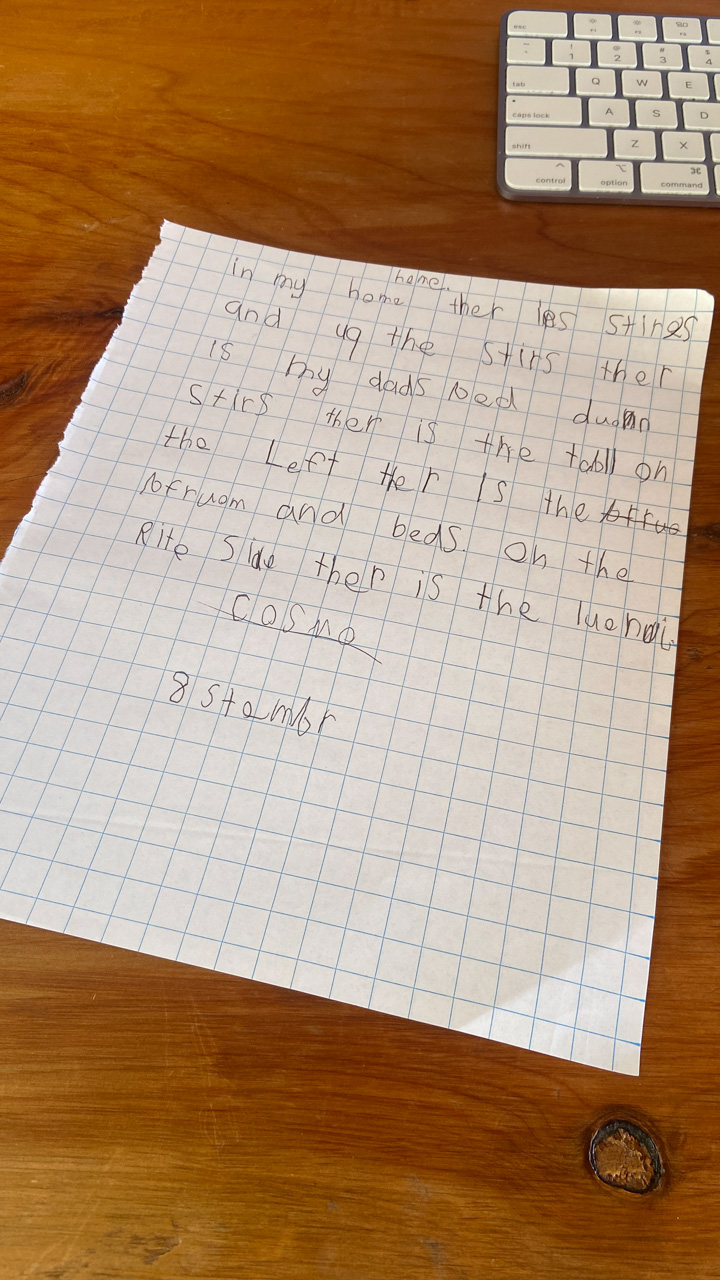 esc F1 F2 F3
~ ` ! 1 @ 2 # 3 $ 4
tab Q W E
caps lock A S D
shift Z X
control option command
home.
in my home ther is stires
and uq the stirs ther
is my dads bed duawn
stirs ther is the tabll on
the Left ther is the bffruo
bfruom and beds. on the
Rite side ther is the luendi.
cosmo
8 stambr